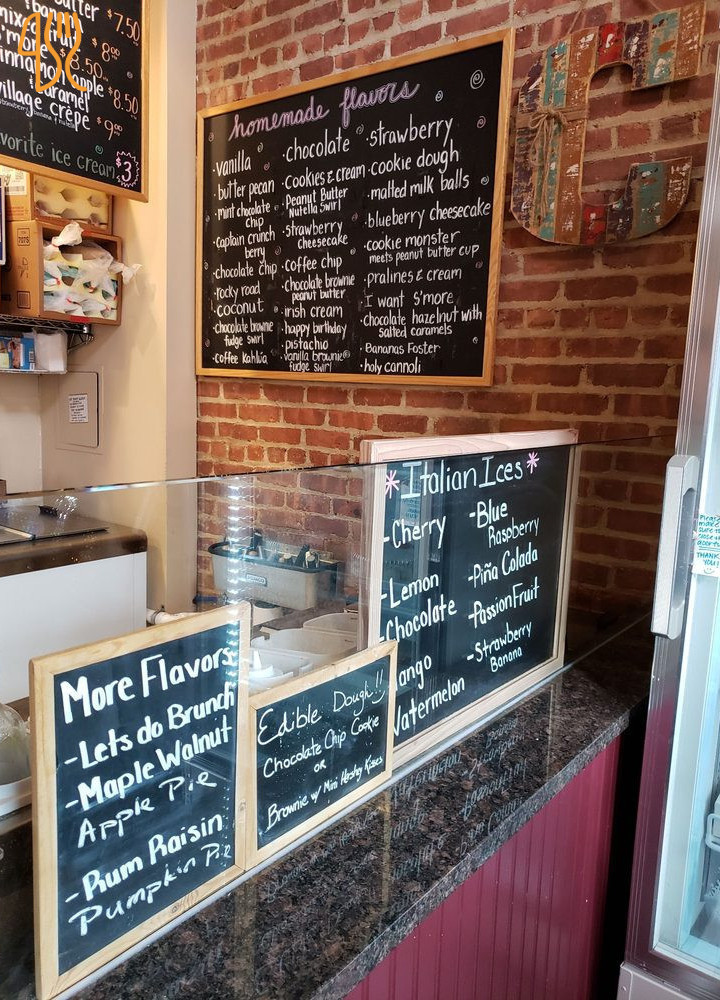 Butter $7.50
mixed fruit $8.00
s'more $8.50
cinnamon apple
caramel $8.50
village crêpe
$9.00
favorite ice cream $3
homemade flavors
·vanilla
·butter pecan
·mint chocolate
chip
·captain crunch
berry
·chocolate chip
·rocky road
·coconut
·chocolate browne
fudge swirl
·coffee kahlua
·chocolate
·Cookies & cream
·Peanut Butter
Nutella swirl
·strawberry
cheesecake
·coffee chip
·chocolate brownie
peanut butter
·irish cream
·happy birthday
·pistachio
·vanilla brownie
fudge swirl
·strawberry
·cookie dough
·malted milk balls
·blueberry cheesecake
·cookie monster
meets peanut butter cup
·pralines & cream
·I want s'more
·chocolate hazelnut with
salted caramels
·Bananas Foster
·holy cannoli
C
*Italian Ices*
-Cherry
-Lemon
-Chocolate
Mango
Watermelon
-Blue
Raspberry
-Piña Colada
-Passion Fruit
-Strawberry
Banana
More Flavors
-Lets do Brunch
-Maple Walnut
Apple Pie
-Rum Raisin
Pumpkin Pie
Edible Dough!!
Chocolate Chip Cookie
or
Brownie w/ Mini Hershey Kisses
THANK
YOU!